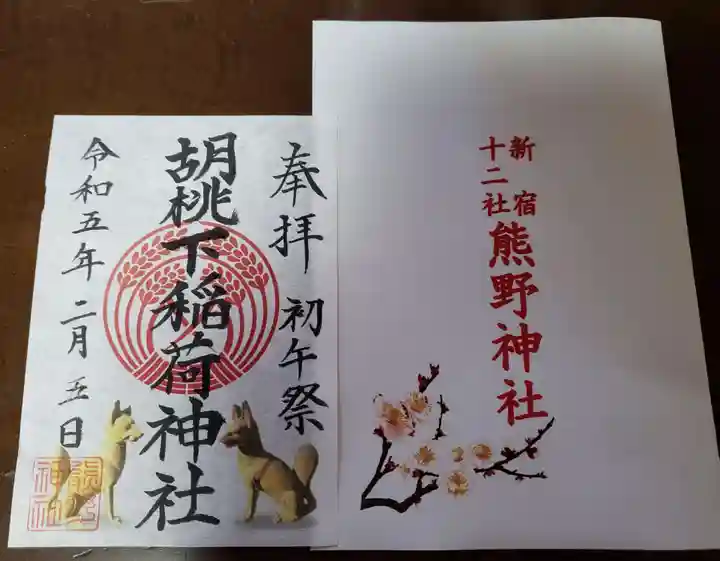 奉拝 初午祭
胡桃下稲荷神社
令和五年二月五日
熊野神社
新宿
十二社
熊野神社